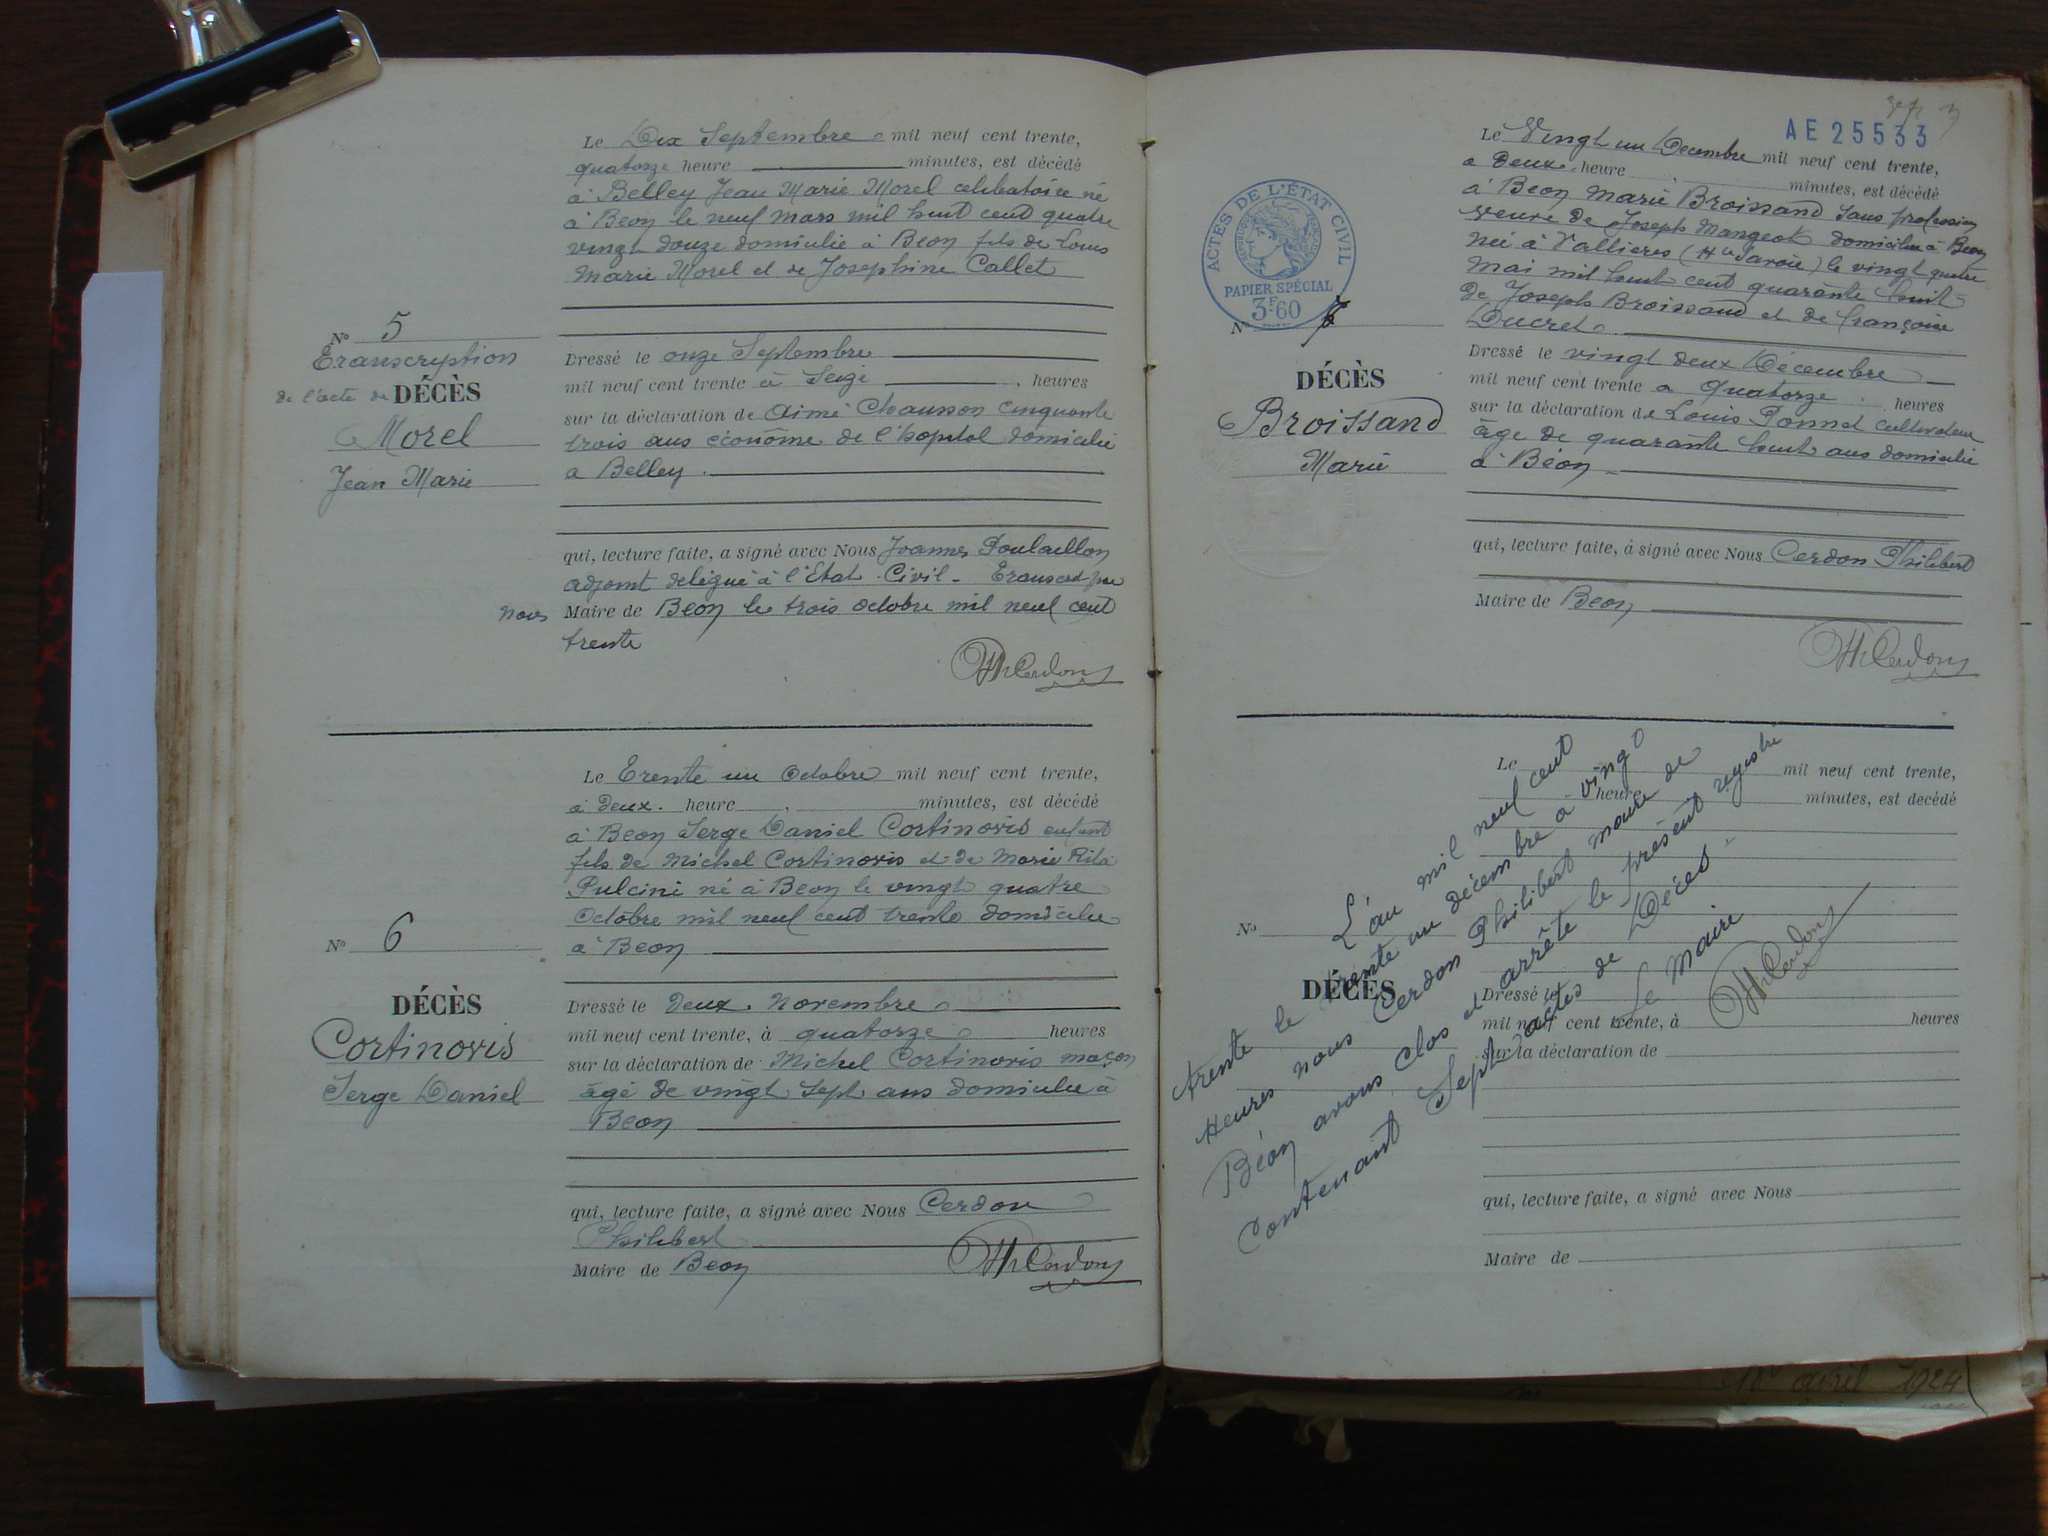 Le Dix Septembre mil neuf cent trente,
quatorze heure minutes, est décédé
à Belley Jean Marie Morel celibatoire né
à Beon le neuf mars mil huit cent quatre
vingt douze domicilié à Beon fils de Louis
Marie Morel et de Josephine Callet
No 5
Transcription
de l'acte de DÉCÈS
Morel
Jean Marie
Dressé le onze Septembre
mil neuf cent trente à Seize heures
sur la déclaration de Aimé Chausson cinquante
trois ans économe de l'hopital domicilié
a Belley.
qui, lecture faite, a signé avec Nous Joannes Poulaillon
adjoint delégué à l'Etat-Civil - Transcrit par
nous Maire de Beon le trois octobre mil neuf cent
trente
Ph Cerdon
Le Trente un Octobre mil neuf cent trente,
à deux. heure minutes, est décédé
à Beon Serge Daniel Cortinovis enfant
fils de Michel Cortinovis et de Marie Rita
Pulcini né à Beon le vingt quatre
Octobre mil neuf cent trente domicilié
à Beon
No 6
DÉCÈS
Cortinovis
Serge Daniel
Dressé le Deux Novembre
mil neuf cent trente, à quatorze heures
sur la déclaration de Michel Cortinovis maçon
âgé de vingt sept ans domicilié à
Beon
qui, lecture faite, a signé avec Nous Cerdon
Philibert
Maire de Beon
Ph Cerdon
AE 25533
ACTES DE L'ÉTAT CIVIL
PAPIER SPÉCIAL
3F60
Le Vingt un Decembre mil neuf cent trente,
a Deux heure minutes, est décédé
à Beon Marie Broissand sans profession
veuve de Joseph Mangeot domiciliée à Beon
Née à Vallieres (Hte Savoie) le vingt quatre
mai mil huit cent quarante huit
de Joseph Broissand et de françoise
Ducret
No 7
DÉCÈS
Broissand
Marie
Dressé le vingt deux Décembre
mil neuf cent trente a Quatorze heures
sur la déclaration de Louis Ponnet cultivateur
âge de quarante huit ans domicilié
à Béon
qui, lecture faite, à signé avec Nous Cerdon Philibert
Maire de Beon
Ph Cerdon
Le mil neuf cent trente,
heure minutes, est decédé
No
DÉCÈS
Dressé le
mil neuf cent trente, à heures
sur la déclaration de
qui, lecture faite, a signé avec Nous
Maire de
L'an mil neuf cent
trente le trente un décembre à vingt
Heures nous Cerdon Philibert maire de
Béon avons clos et arrête le présent registre
contenant Sept actes de Décès
Le Maire
Ph Cerdon
avril 1924